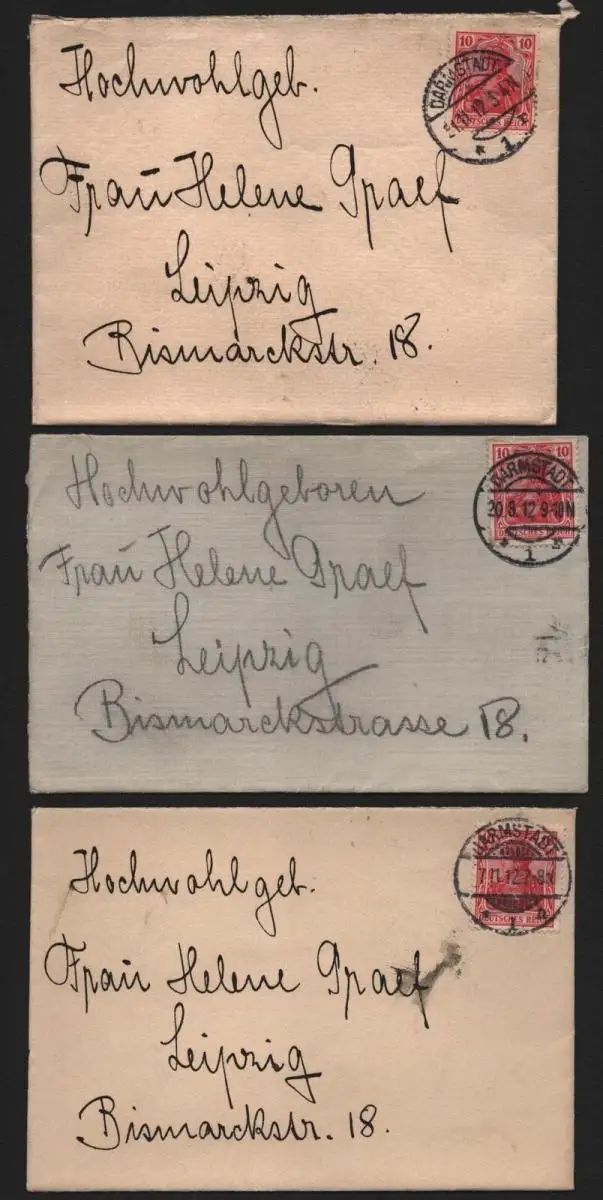 Hochwohlgeb.
Frau Helene Graef
Leipzig
Bismarckstr. 18.
10 10
DARMSTADT
DEUTSCHES REICH
* 1 *
Hochwohlgeboren
Frau Helene Graef
Leipzig
Bismarckstrasse 18.
10 10
DARMSTADT
20.8.12 9-10N
DEUTSCHES REICH
* 1 *
Hochwohlgeb.
Frau Helene Graef
Leipzig
Bismarckstr. 18.
DARMSTADT
7.11.12.7-8N
DEUTSCHES REICH
* 1